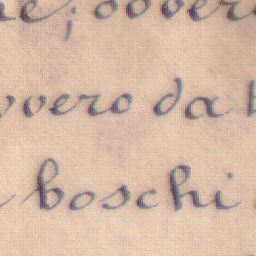 e; ovver
vvero da
boschi